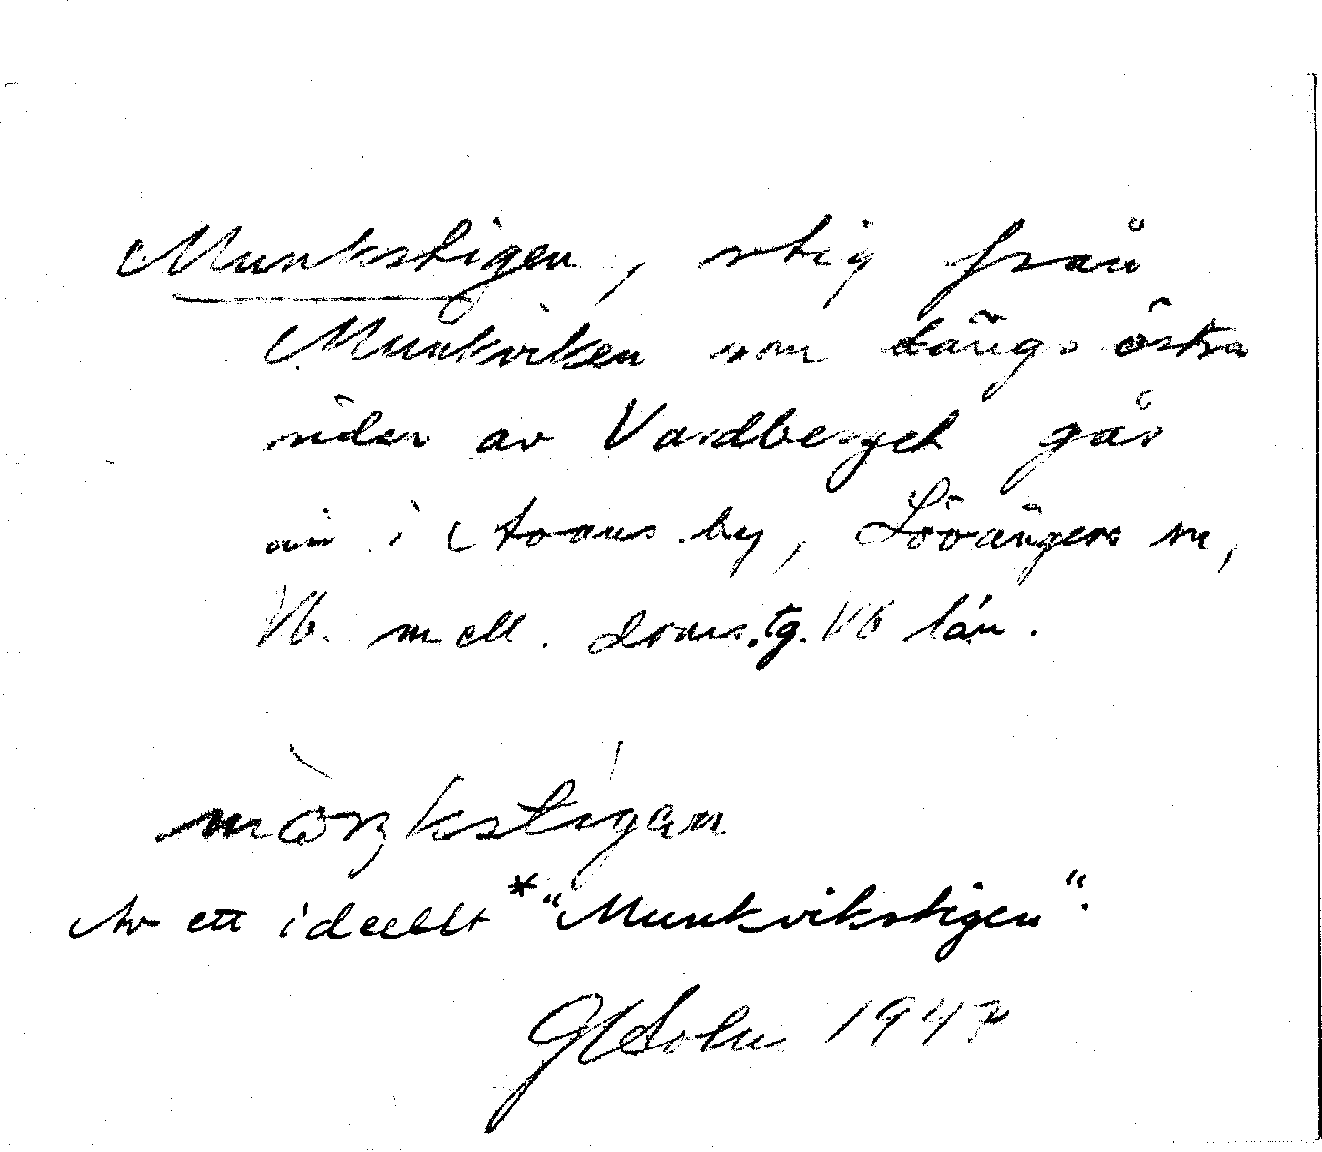 Munkstigen, stig från
Munkviken som längs östra
sidan av Vardberget går
in i Avans by, Lövångers sn,
Vb. mell. doms.tg. Vb län.
Av ett ideellt * "Munkvikstigen".
1947